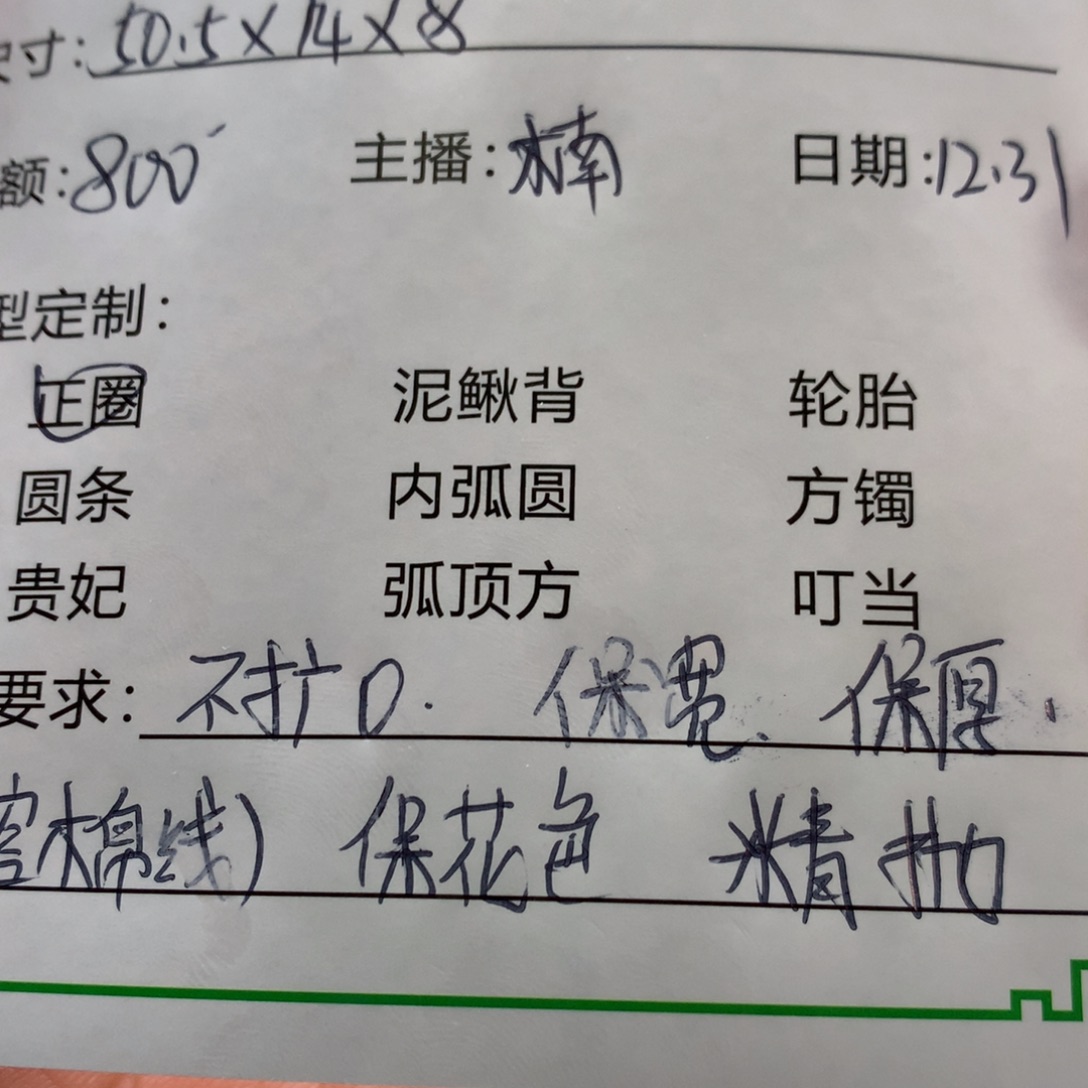 尺寸: 50.5×14×8
额: 800 主播: 楠 日期: 12.31
型定制:
正圈 泥鳅背 轮胎
圆条 内弧圆 方镯
贵妃 弧顶方 叮当
要求: 不扩口. 保宽. 保厚.
棉线) 保花色 精抛